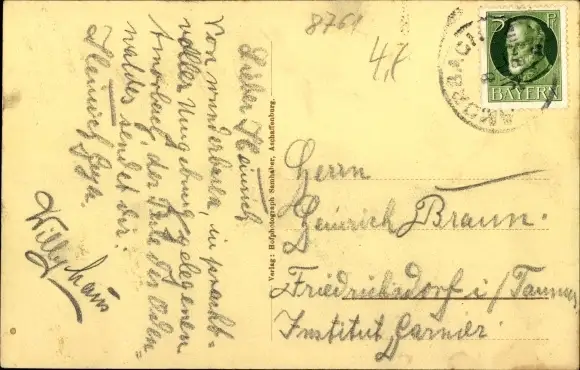 8761
4,7
5 Pf
BAYERN
AMORBACH
Lieber Heinrich
Von wunderbarer, in pracht-
voller Umgebung gelegenen
Amorburg, der Perle des Oden=
waldes sendet dir:
Heinrich
Willy
Verlag: Hofphotograph Samhaber, Aschaffenburg.
Herrn
Heinrich Braun.
Friedrichsdorf i/Taunus
Institut Garnier